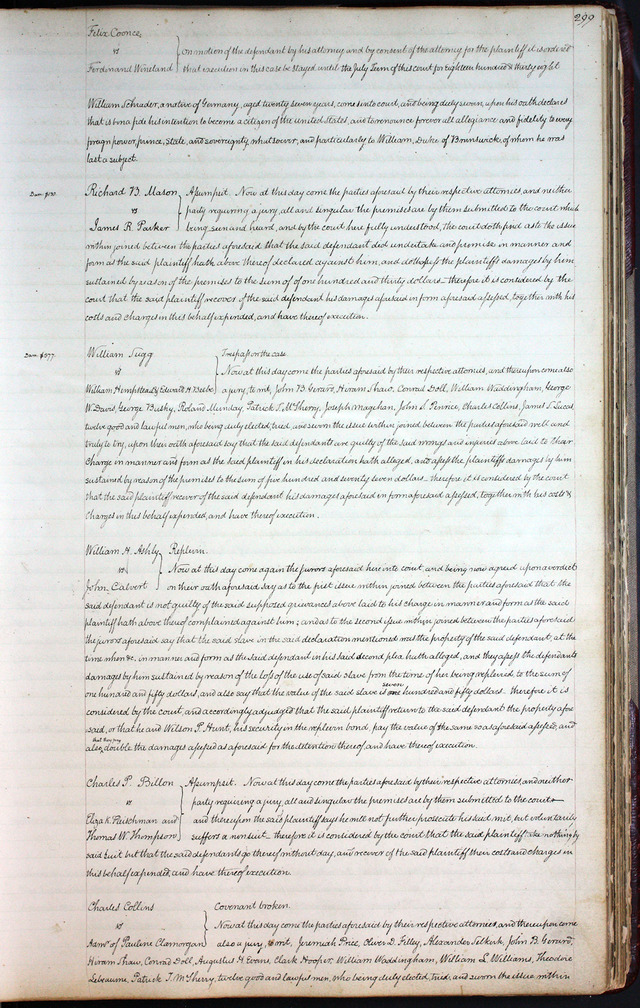 299
Felix Coonce
vs
Ferdinand Wineland
on motion of the defendant by his attorney and by consent of the attorney for the plaintiff it is ordered
that execution in this case be stayed until the July Term of this court for Eighteen hundred & thirty eight
William Schrader, a native of Germany, aged twenty seven years, comes into court, and being duly sworn, upon his oath declares
that it is bona fide his intention to become a citizen of the United States, and to renounce forever all allegiance and fidelity to every
foreign power, prince, state, and sovereignty whatsoever, and particularly to William, Duke of Brunswick, of whom he was
last a subject.
Dam. $130.
Richard B. Mason
vs
James R. Parker
Assumpsit. Now at this day come the parties aforesaid by their respective attornies, and neither
party requiring a jury, all and singular the premises are by them submitted to the court which
being seen and heard, and by the court here fully understood, the court doth find as to the issue
within joined between the parties aforesaid that the said defendant did undertake and promise in manner and
form as the said plaintiff hath above thereof declared against him, and doth assess the plaintiff's damages by him
sustained by reason of the premises to the sum of of one hundred and thirty dollars – therefore it is considered by the
court that the said plaintiff recover of the said defendant his damages aforesaid in form aforesaid assessed, together with his
costs and charges in this behalf expended, and have thereof execution.
Dam. $577.
William Sugg
vs
William Hempstead & Edward H. Beebe
Trespass on the case
Now at this day come the parties aforesaid by their respective attornies, and thereupon come also
a jury, to wit, John B. Gerard, Hiram Shaw, Conrad Doll, William Waddingham, George
W. Davis, George Busby, Roland Munday, Patrick T. McSherry, Joseph Magehan, John S. Pennice, Charles Collins, James T. Lucas
twelve good and lawful men, who being duly elected, tried, and sworn the issue within joined between the parties aforesaid well and
truly to try, upon their oath aforesaid say that the said defendants are guilty of the said wrongs and injuries above laid to their
charge in manner and form as the said plaintiff in his declaration hath alleged, and assess the plaintiff's damages by him
sustained by reason of the premises to the sum of five hundred and seventy seven dollars – therefore it is considered by the court
that the said plaintiff recover of the said defendant his damages aforesaid in form aforesaid assessed, together with his costs &
charges in this behalf expended, and have thereof execution.
William H. Ashly
vs
John Calvert
Replevin.
Now at this day come again the jurors aforesaid here into court, and being now agreed upon a verdict
on their oath aforesaid say as to the first issue within joined between the parties aforesaid that the
said defendant is not guilty of the said supposed grievances above laid to his charge in manner and form as the said
plaintiff hath above thereof complained against him; and as to the second issue within joined between the parties aforesaid
the jurors aforesaid say that the said slave in the said declaration mentioned was the property of the said defendant, at the
time when &c. in manner and form as the said defendant in his said second plea hath alleged, and they assess the defendants
damages by him sustained by reason of the loss of the use of said slave from the time of her being replevied, to the sum of
one hundred and fifty dollars, and also say that the value of the said slave is seven hundred and fifty dollars. therefore it is
considered by the court, and accordingly adjudged that the said plaintiff return to the said defendant the property afore
said, or that he and Wilson P. Hunt, his security in the replevin bond, pay the value of the same so as aforesaid assessed, and
also that they pay double the damages assessed as aforesaid for the detention thereof, and have thereof execution.
Charles P. Billon
vs
Eliza K. Fleischman and
Thomas W. Thompson
Assumpsit. Now at this day come the parties aforesaid by their respective attornies, and neither
party requiring a jury, all and singular the premises are by them submitted to the court
and thereupon the said plaintiff says he will not further prosecute his said suit, but voluntarily
suffers a nonsuit – therefore it is considered by the court that the said plaintiff take nothing by
said suit but that the said defendants go thereof without day, and recover of the said plaintiff their costs and charges in
this behalf expended, and have thereof execution.
Charles Collins
vs
Admr of Pauline Clamorgan
Covenant broken.
Now at this day come the parties aforesaid by their respective attornies, and thereupon come
also a jury, to wit, Jeremiah Price, Oliver D. Filley, Alexander Selkirk, John B. Gerard,
Hiram Shaw, Conrad Doll, Augustus H. Evans, Clark Hooper, William Waddingham, William L. Williams, Theodore
Lebeaume, Patrick T. McSherry, twelve good and lawful men, who being duly elected, tried, and sworn the issue within